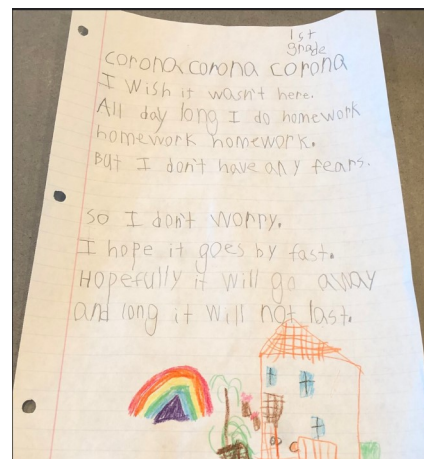 1st
grade
corona corona corona
I wish it wasn't here.
All day long I do homework
homework homework.
But I don't have any fears.
So I don't worry.
I hope it goes by fast.
Hopefully it will go away
and long it will not last.